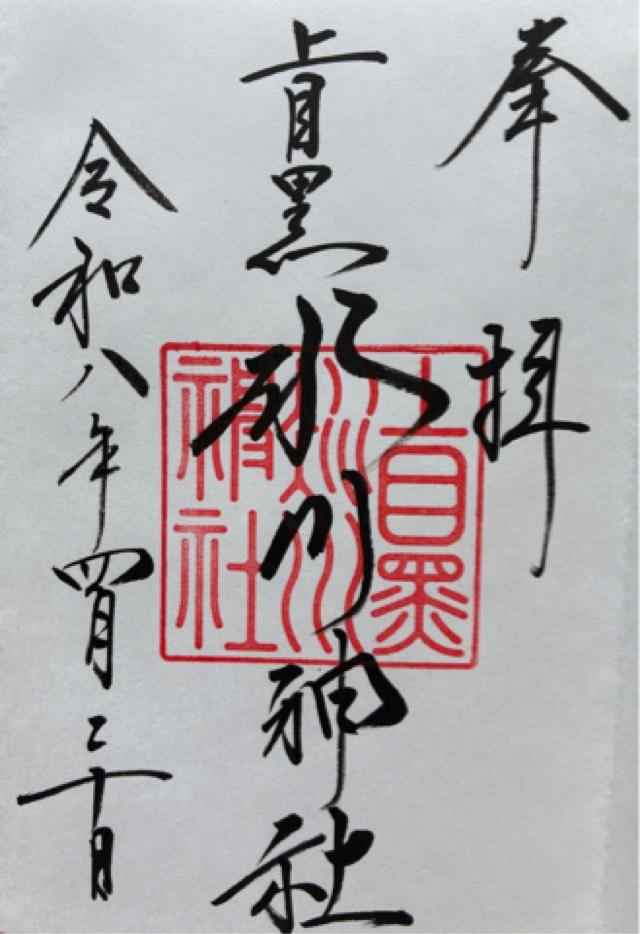 奉拝
上目黒氷川神社
上目黒氷川神社
令和八年四月二十日